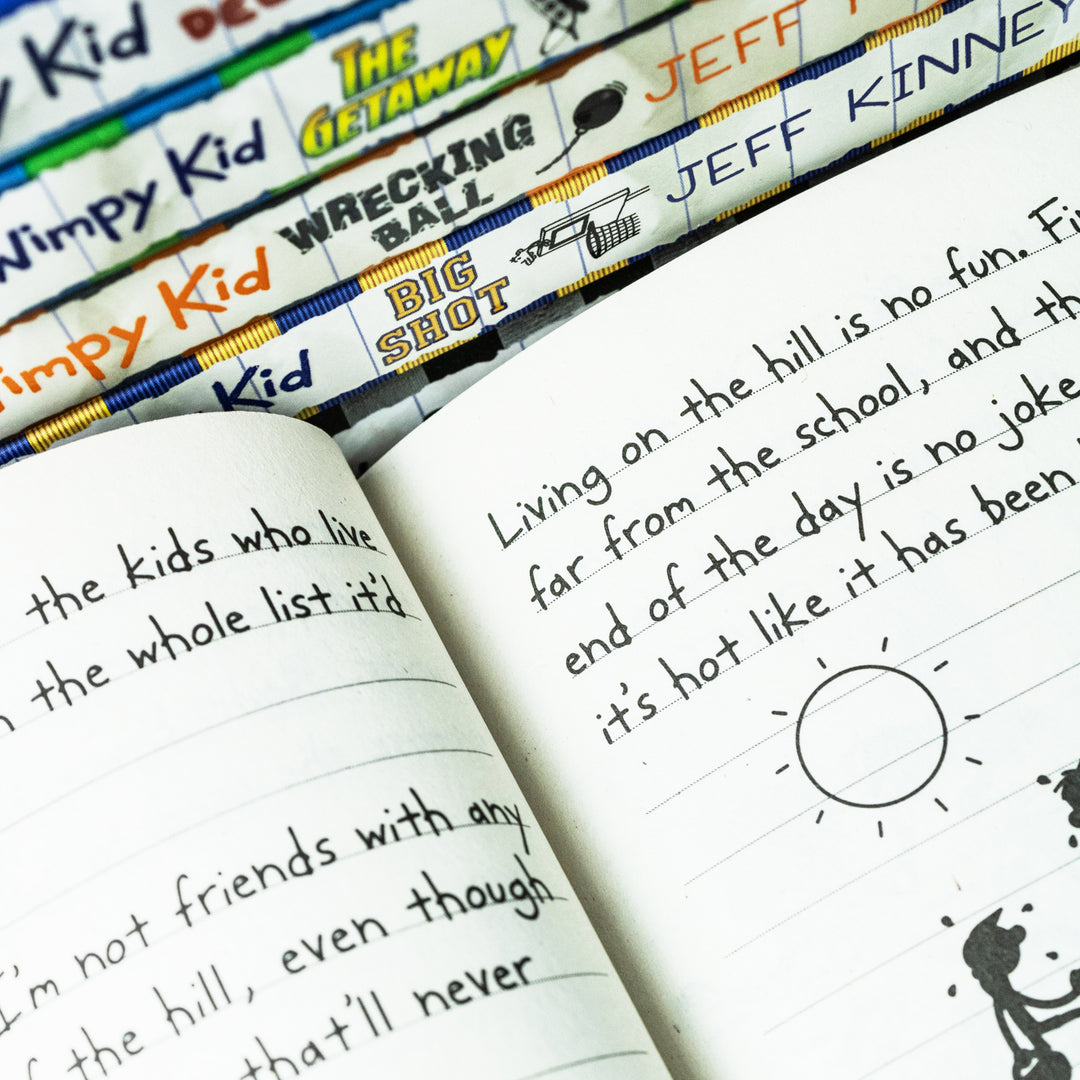 Kid
Wimpy Kid THE GETAWAY JEFF
Wimpy Kid WRECKING BALL JEFF KINNEY
Kid BIG SHOT
the kids who live
the whole list it'd
I'm not friends with any
the hill, even though
that'll never
Living on the hill is no fun.
far from the school, and
end of the day is no joke
it's hot like it has been